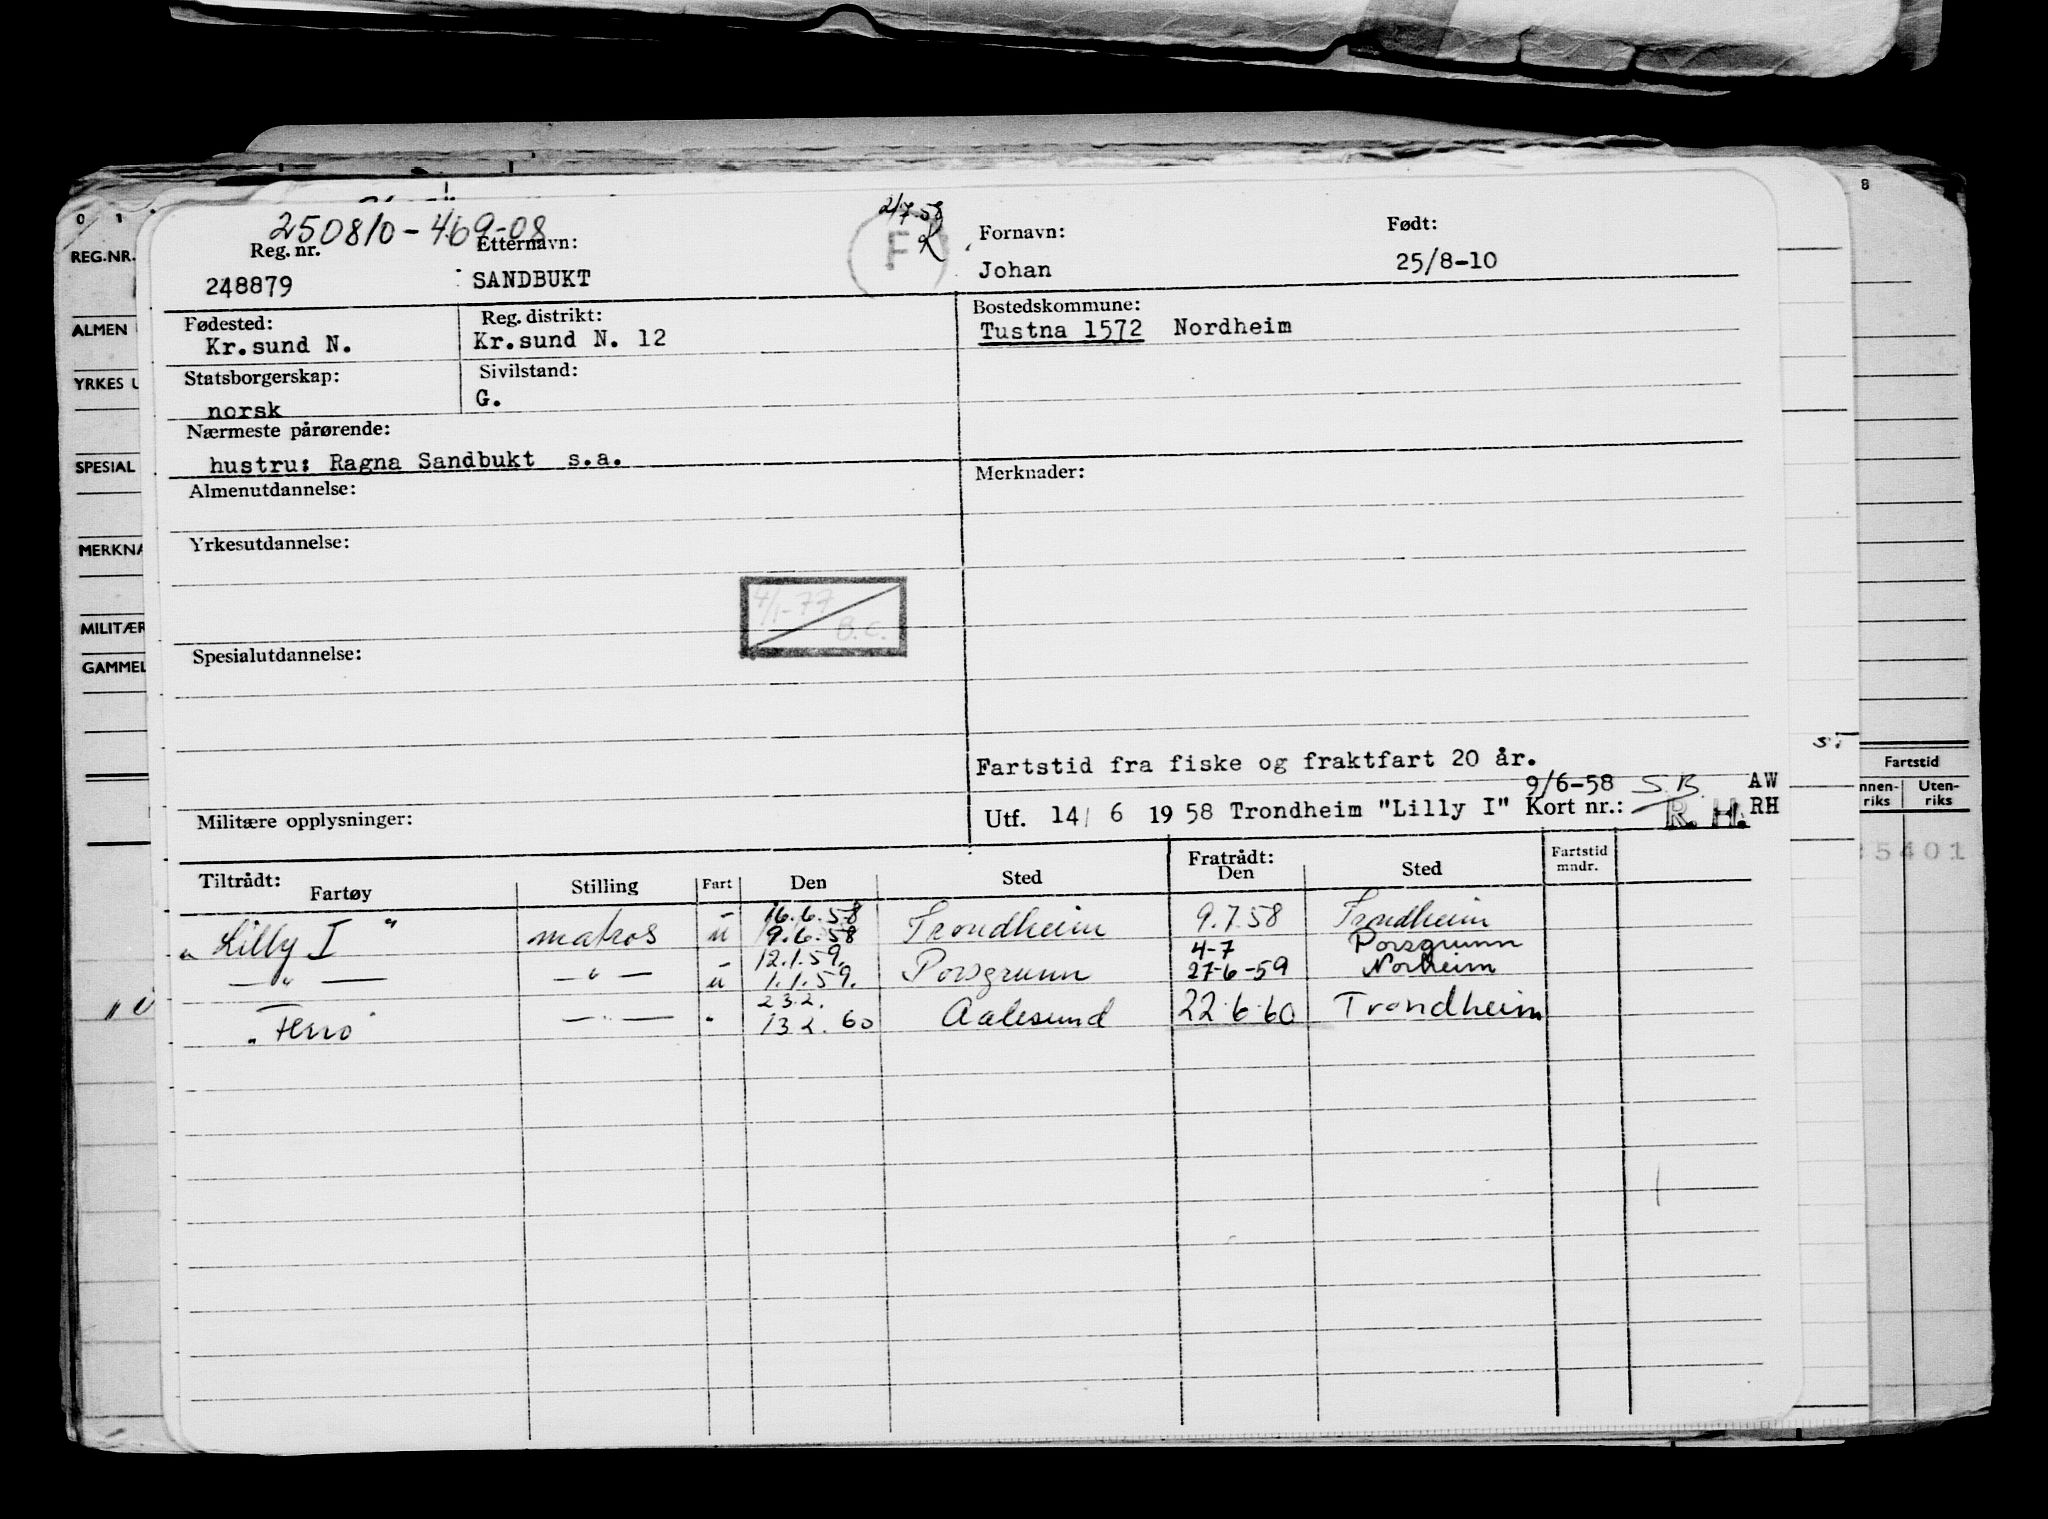 0 1
8
REG.NR.
ALMEN
YRKES U
SPESIAL
MERKNA
MILITÆR
GAMMEL
250810-469-08
2/7.58
F K
Reg. nr. Etternavn: Fornavn: Født:
248879 SANDBUKT Johan 25/8-10
Fødested: Reg. distrikt: Bostedskommune:
Kr.sund N. Kr.sund N. 12 Tustna 1572 Nordheim
Statsborgerskap: Sivilstand:
norsk G.
Nærmeste pårørende:
hustru: Ragna Sandbukt s.a.
Almenutdannelse: Merknader:
Yrkesutdannelse:
4/1-77
B.C.
Spesialutdannelse:
Fartstid fra fiske og fraktfart 20 år.
9/6-58 S.B. AW
Militære opplysninger: Utf. 14/ 6 1958 Trondheim "Lilly I" Kort nr.: R. H. RH
Fartstid
nnen-riks Uten-riks
5401
Tiltrådt: Fratrådt:
Fartøy Stilling Fart Den Sted Den Sted Fartstid mndr.
16.6.58
"Lilly I" matros u 9.6.58 Trondheim 9.7.58 Trondheim
12.1.59. 4-7 Porsgrunn
—"— —"— u 1.1.59. Porsgrunn 27-6-59 Norheim
23.2.
—"— " 13.2.60 Aalesund 22.6.60 Trondheim